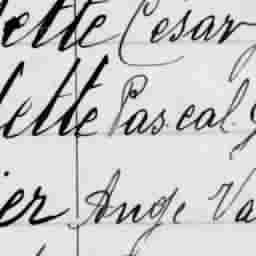 ette César
lette Pascal J
ier Ange Va